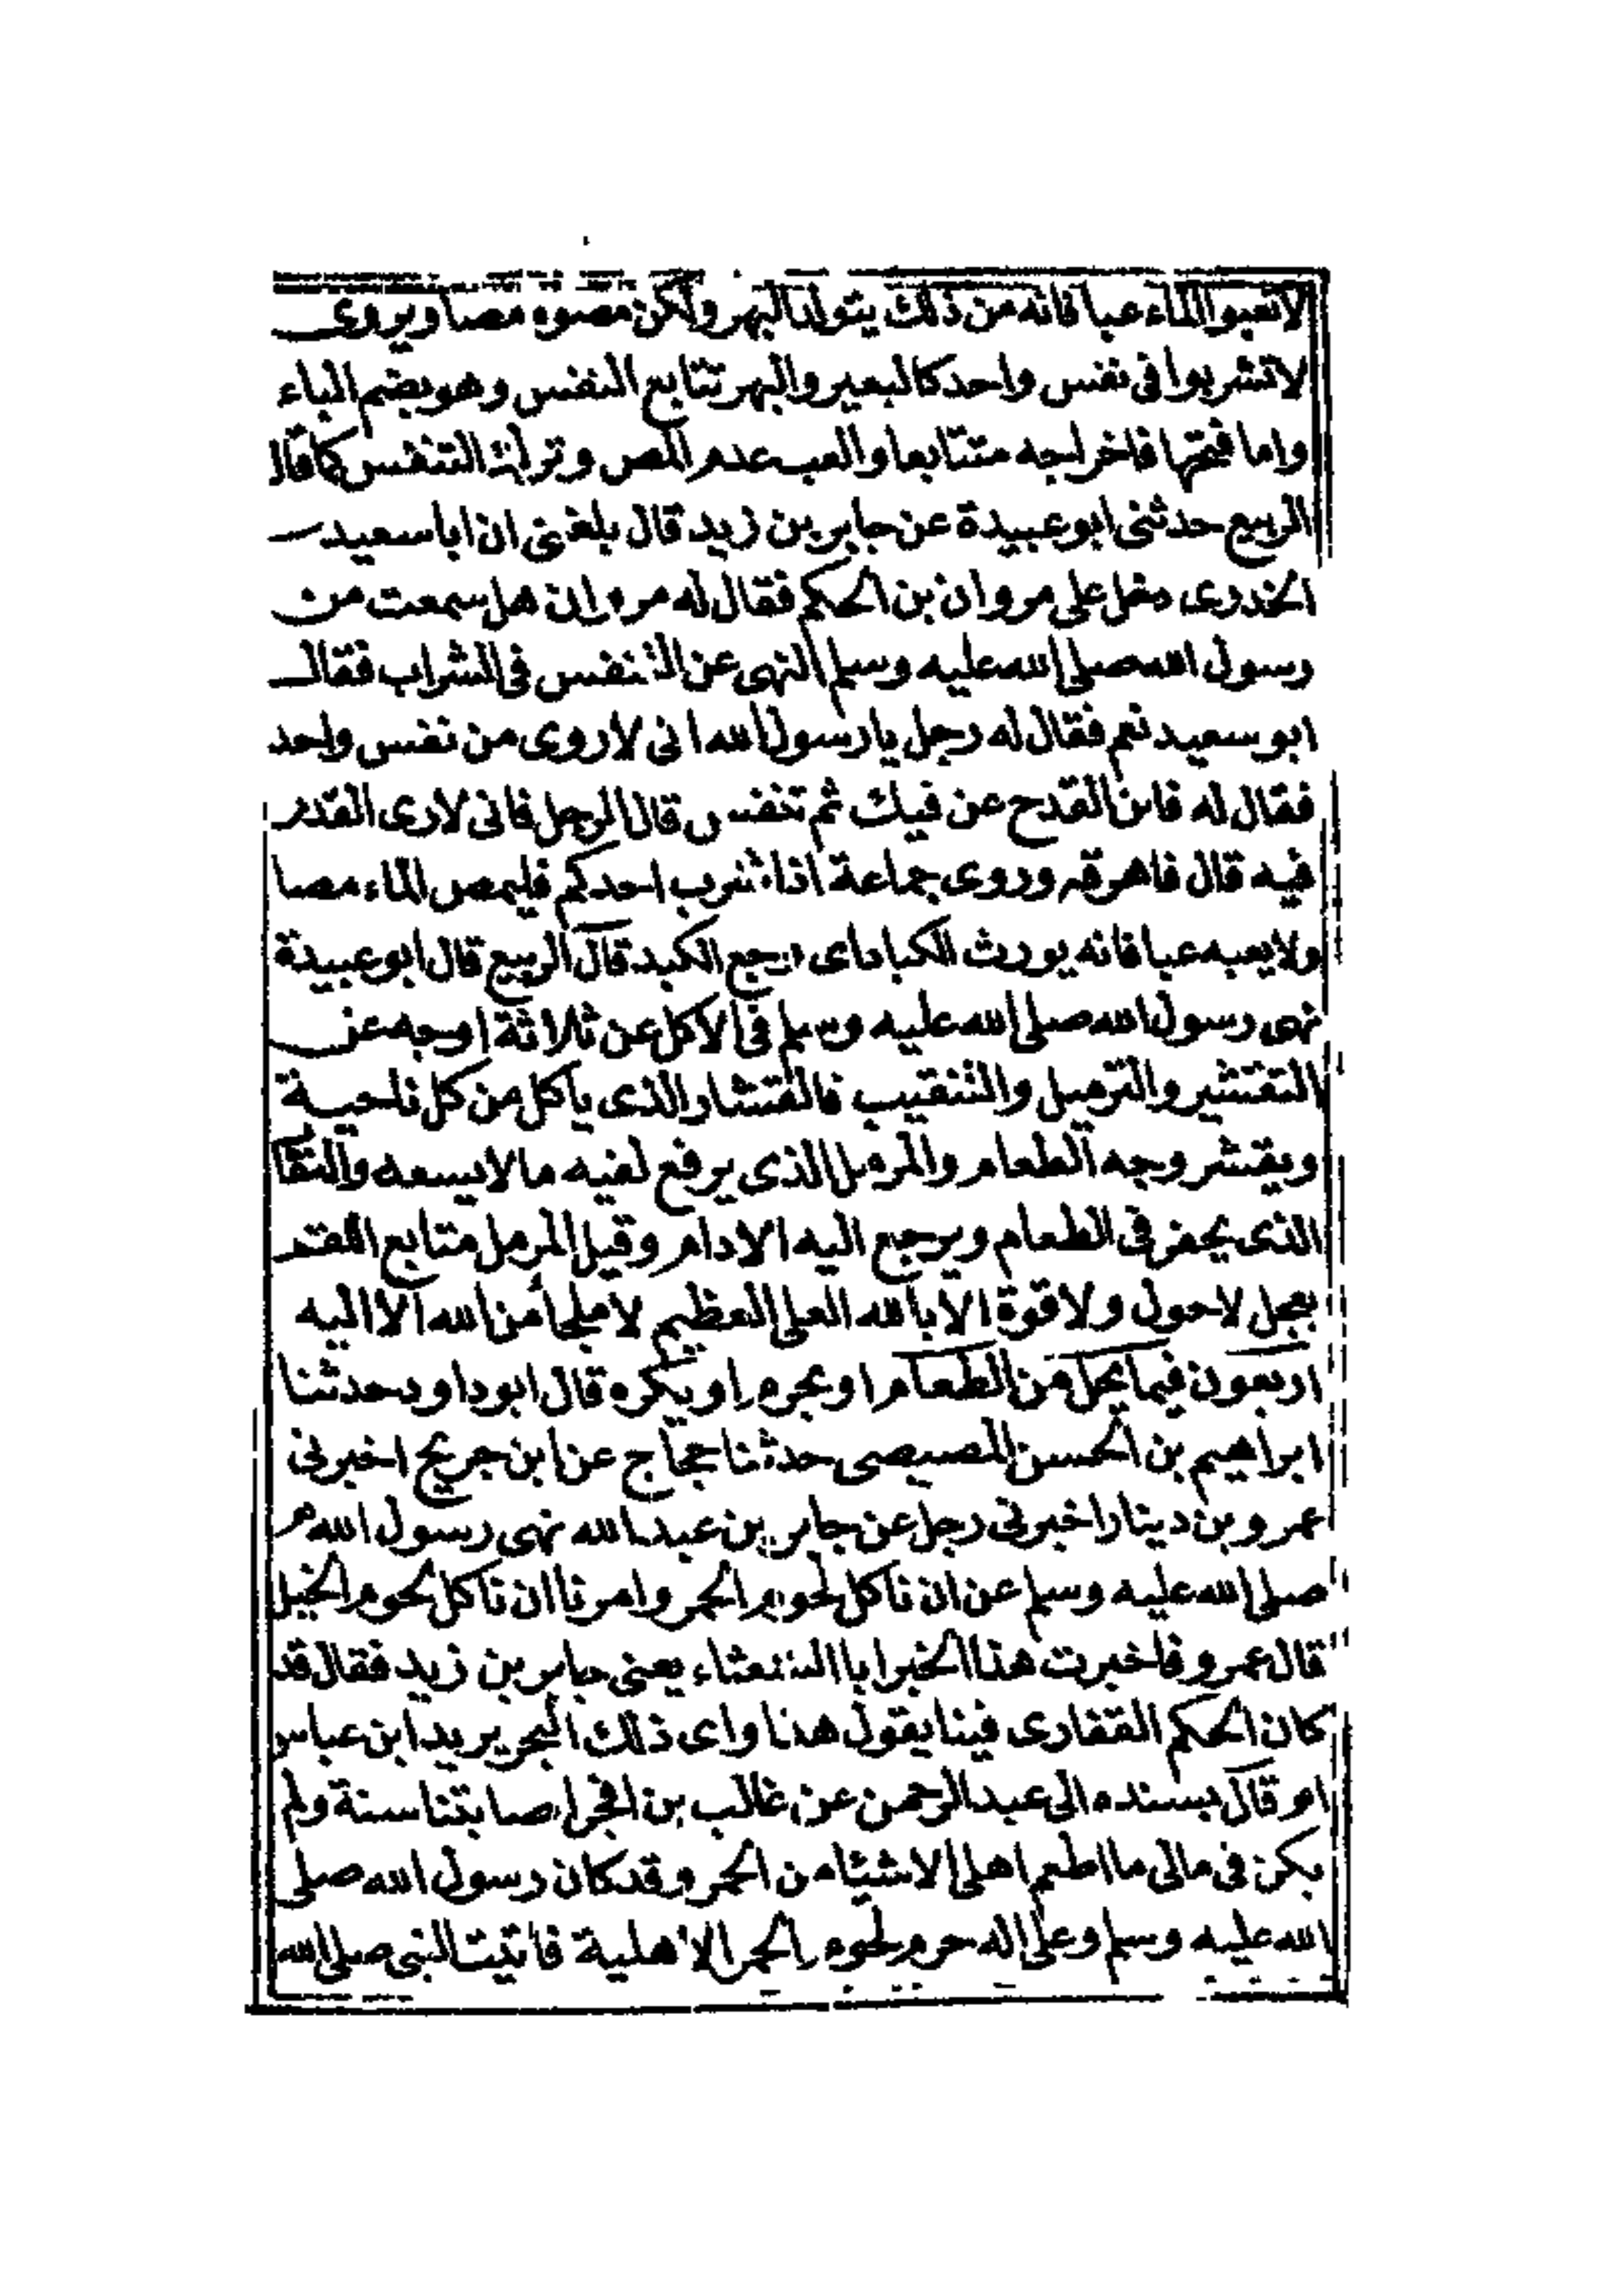 لا تعبوا الماء عبا فانه من ذلك يتولد البهر ولكن مصوه مصا ويروى
لا تشربوا فى نفس واحد كالبعير والبهر تتابع النفس وهو بضم الباء
واما فتحها فاخراجه متتابعا والعب عدم المص وترك التنفس كما قال
الربيع حدثنى ابو عبيدة عن جابر بن زيد قال بلغنى ان ابا سعيد
الخدرى دخل على مروان بن الحكم فقال له مروان هل سمعت من
رسول الله صلى الله عليه وسلم النهى عن التنفس فى الشراب فقال
ابو سعيد نعم فقال له رجل يا رسول الله انى لا روى من نفس واحد
فقال له فابن القدح عن فيك ثم تنفس قال الرجل فانى لارى القذر
فيه قال فاهرقه وروى جماعة اذا شرب احدكم فليمص الماء مصا
ولا يعبه عبا فانه يورث الكباد اى وجع الكبد قال الربيع قال ابو عبيدة
نهى رسول الله صلى الله عليه وسلم فى الاكل عن ثلاثة اوجه عن
التقشير والترميل والتنقيب فالقشار الذى يأكل من كل ناحية
ويقشر وجه الطعام والمرمل الذى يرفع لفيه ما لا يسعه والنقا
الذى يحفر فى الطعام ويرجع اليه الادام وقيل المرمل متابع اللقم
بعجل لا حول ولا قوة الا بالله العلى العظيم لا ملجأ من الله الا اليه
اربعون فيما يحل من الطعام او يحرم او يكره قال ابو داود حدثنا
ابراهيم بن الحسن المصيصى حدثنا حجاج عن ابن جريج اخبرنى
عمرو بن دينار اخبرنى رجل عن جابر بن عبد الله نهى رسول الله
صلى الله عليه وسلم عن ان ناكل لحوم الحمر وامرنا ان ناكل لحوم الخيل
قال عمرو فاخبرت هذا الخبر ابا الشعثاء يعنى جابر بن زيد فقال قد
كان الحكم الغفارى فينا يقول هذا واى ذلك البحر يريد ابن عباس
وقال بسنده الى عبد الرحمن عن غالب بن ابجر اصابتنا سنة ولم
يكن فى مالى ما اطعم اهلى الا شيئا من الحمر وقد كان رسول الله صلى
الله عليه وسلم وعلى اله حرم لحوم الحمر الاهلية فاتيت النبى صلى الله